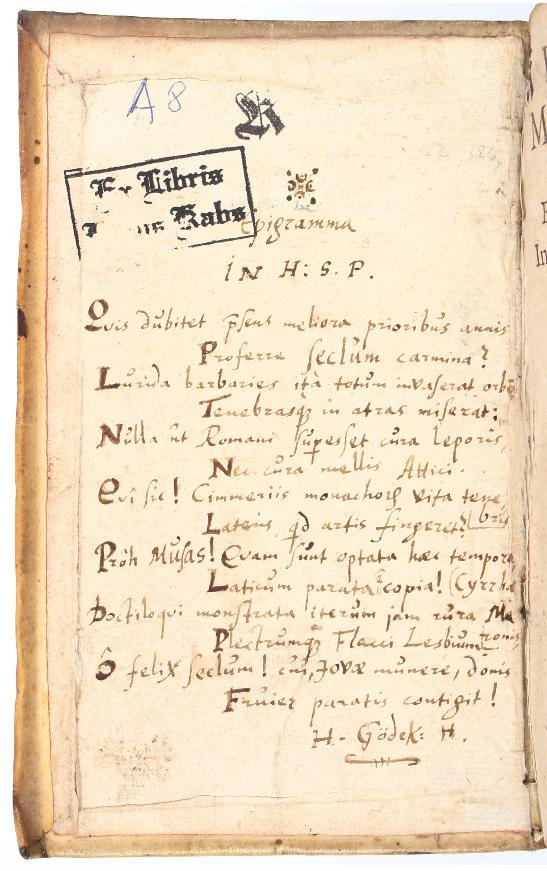 A 8
R
Ex Libris
Rabs
Epigramma
IN H: S. P.
Qvis dubitet p̄sens meliora prioribus annis
Proferre seclum carmina?
Lurida barbaries ità totum invaserat orbē
Tenebrasqꝫ in atras miserat;
Nulla ut Romani supesset cura leporis,
Nec cura mellis Attici.
Qvî sic! Cimmeriis monachorꝝ vita tene
bris
Latens, qd artis fingeret?
Prôh Musas! Qvam sunt optata hæc tempora
Laticum parata copia! (Cyrrhæ
Doctiloqvi monstrata iterum jam rura Ma
ronis
Plectrumqꝫ Flacci Lesbium
Ô felix seclum! cui, Jovæ munere, donis
Fruier paratis contigit!
H. Gödek: H.